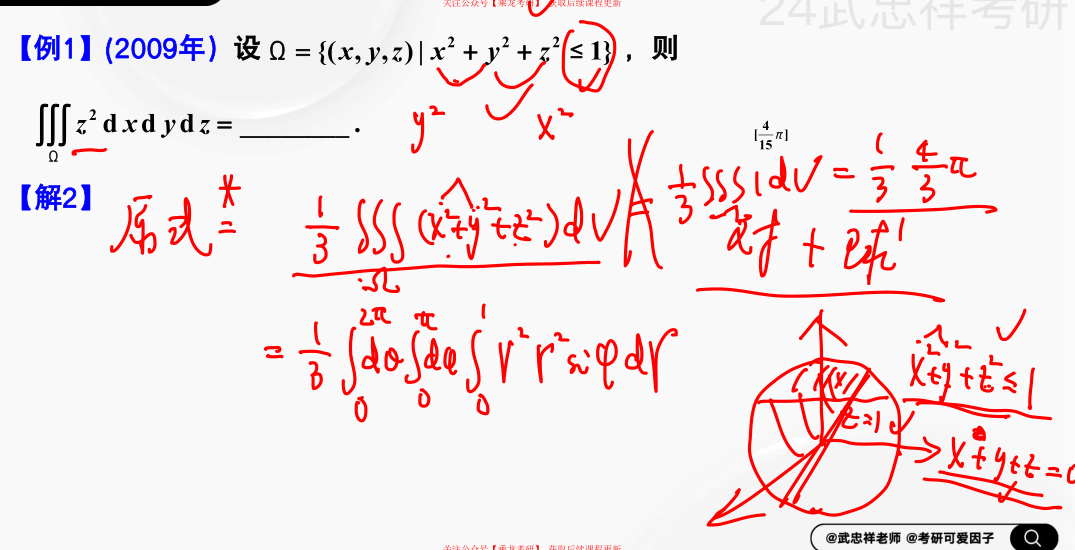 关注公众号【乘龙考研】 获取后续课程更新
24武忠祥考研
【例1】(2009年) 设 Ω = {(x, y, z) | x² + y² + z² ≤ 1}, 则
∭_Ω z² d x d y d z = ________ .
y² x²
[4/15 π]
【解2】
原式 = 1/3 ∭_Ω (x²+y²+z²) dV 1/3 ∭ 1 dV = 1/3 4/3 π
= 1/3 ∫_0^{2π} dθ ∫_0^π dφ ∫_0^1 r² r² sin φ dr
x²+y²+z² ≤ 1
z=1
x+y+z=0
@武忠祥老师 @考研可爱因子
关注公众号【乘龙考研】 获取后续课程更新